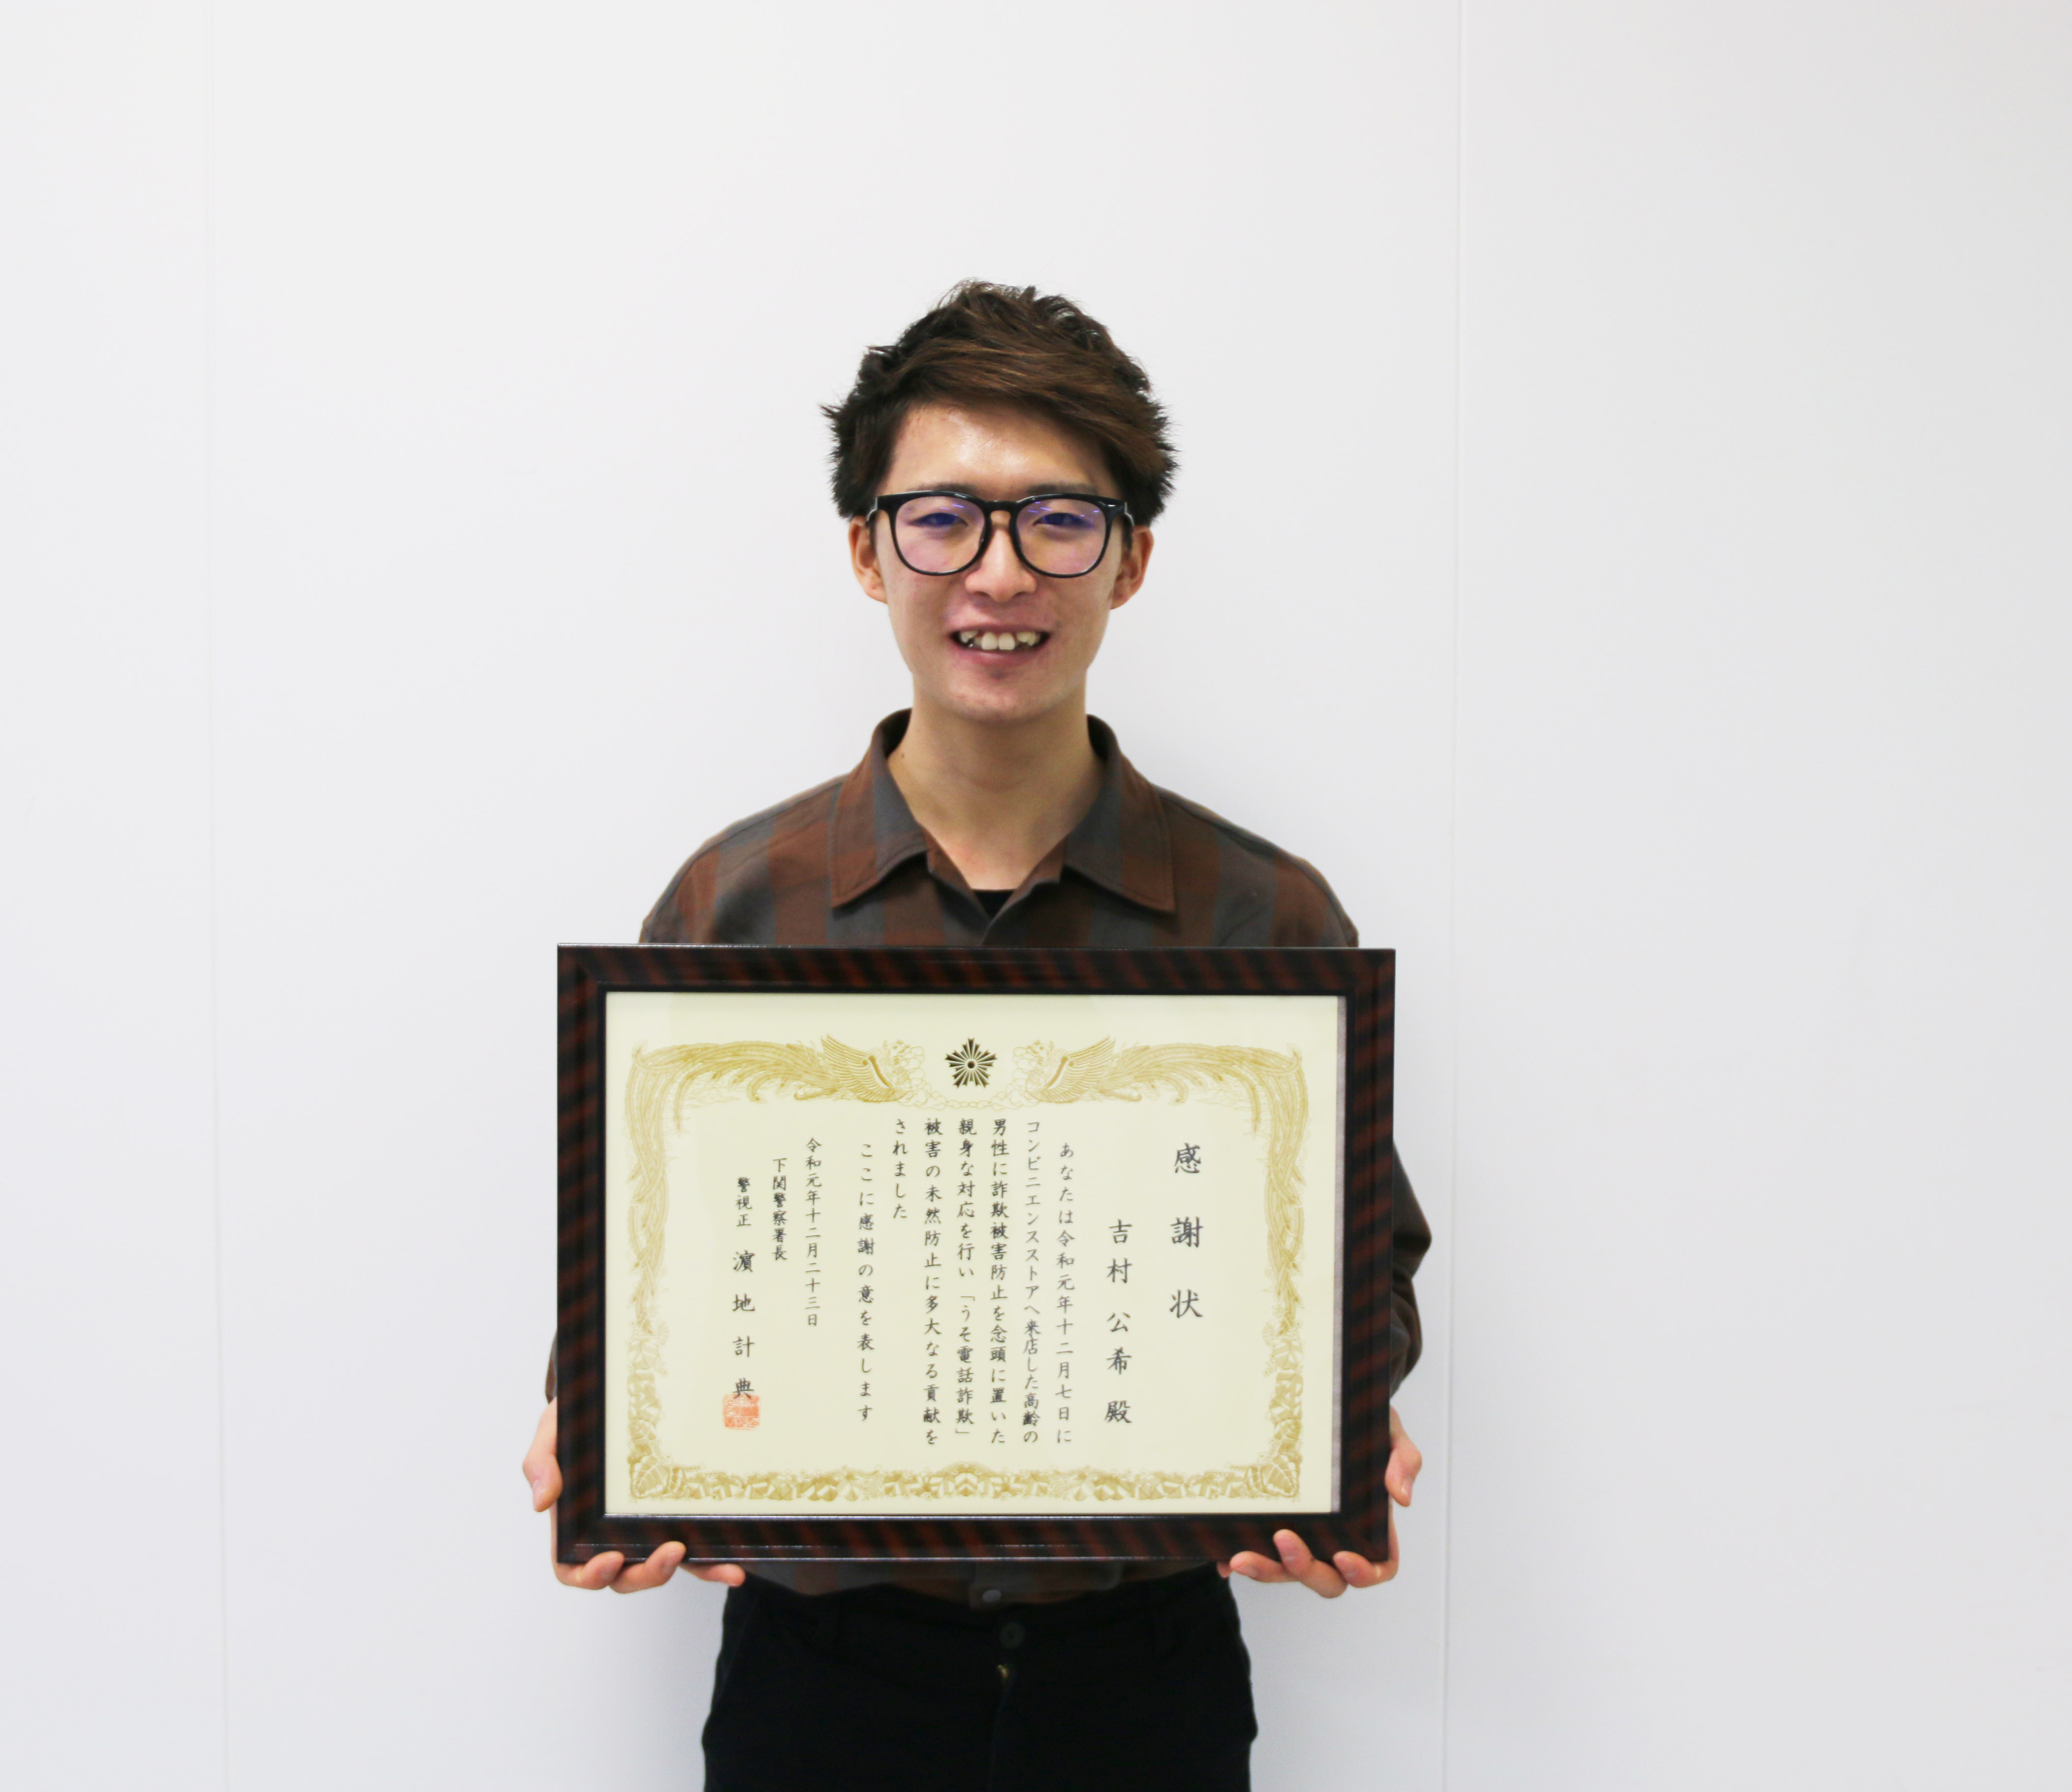 感謝状
吉村公希殿
あなたは令和元年十二月七日に
コンビニエンスストアへ来店した高齢の
男性に詐欺被害防止を念頭に置いた
親身な対応を行い「うそ電話詐欺」
被害の未然防止に多大なる貢献を
されました
ここに感謝の意を表します
令和元年十二月二十三日
下関警察署長
警視正 濵地計典